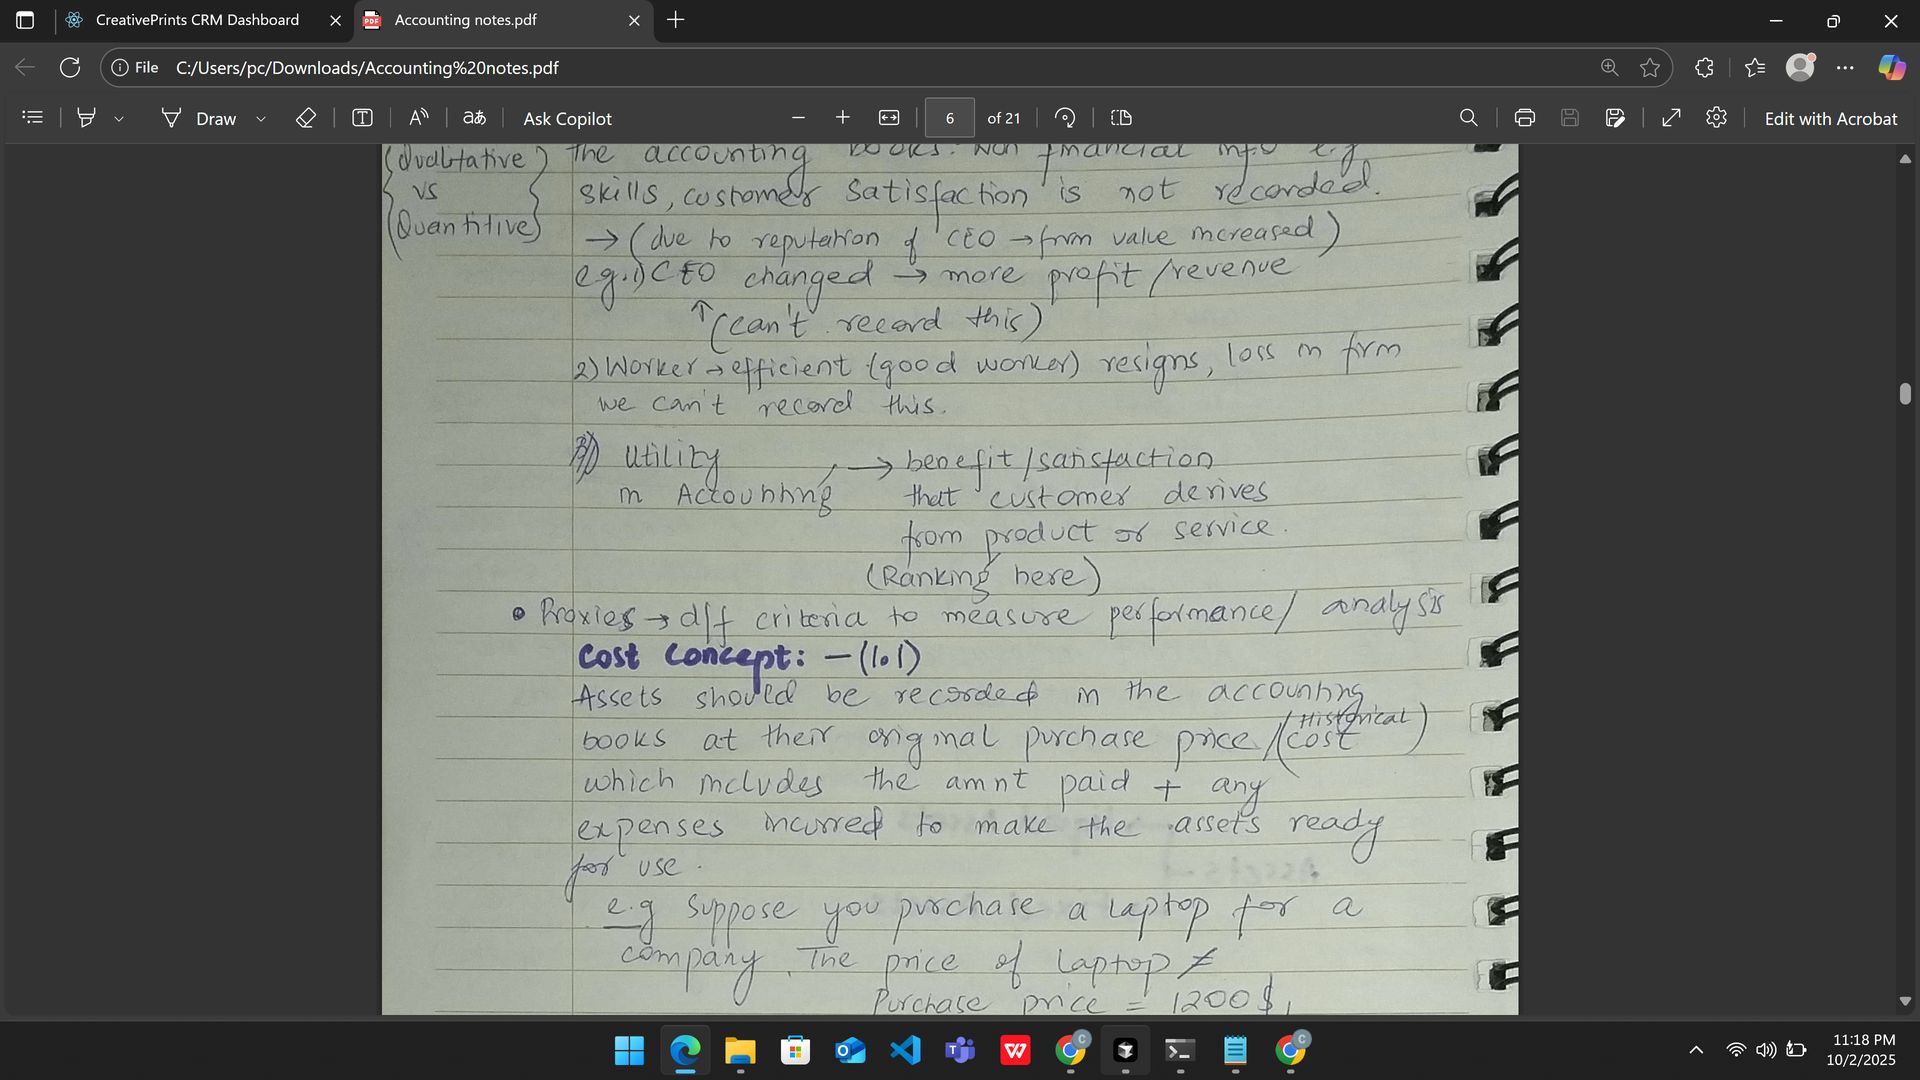 CreativePrints CRM Dashboard
Accounting notes.pdf
File C:/Users/pc/Downloads/Accounting%20notes.pdf
Draw
Ask Copilot
6 of 21
Edit with Acrobat
(Qualitative) the accounting books. Non financial info e.g
vs skills, customer satisfaction is not recorded.
(Quantitive)
→ (due to reputation of CEO → firm value increased)
e.g. 1) CEO changed → more profit / revenue
↑ (can't record this)
2) Worker → efficient (good worker) resigns, loss in firm
we can't record this.
Utility → benefit / satisfaction
in Accounting that customer derives
from product or service.
(Ranking here)
• Proxies → diff criteria to measure performance / analysis
Cost Concept: - (1.1)
Assets should be recorded in the accounting
books at their original purchase price / (Historical cost)
which includes the amnt paid + any
expenses incurred to make the assets ready
for use.
e.g Suppose you purchase a laptop for a
company. The price of laptop ≠
Purchase price = 1200 $,
11:18 PM
10/2/2025